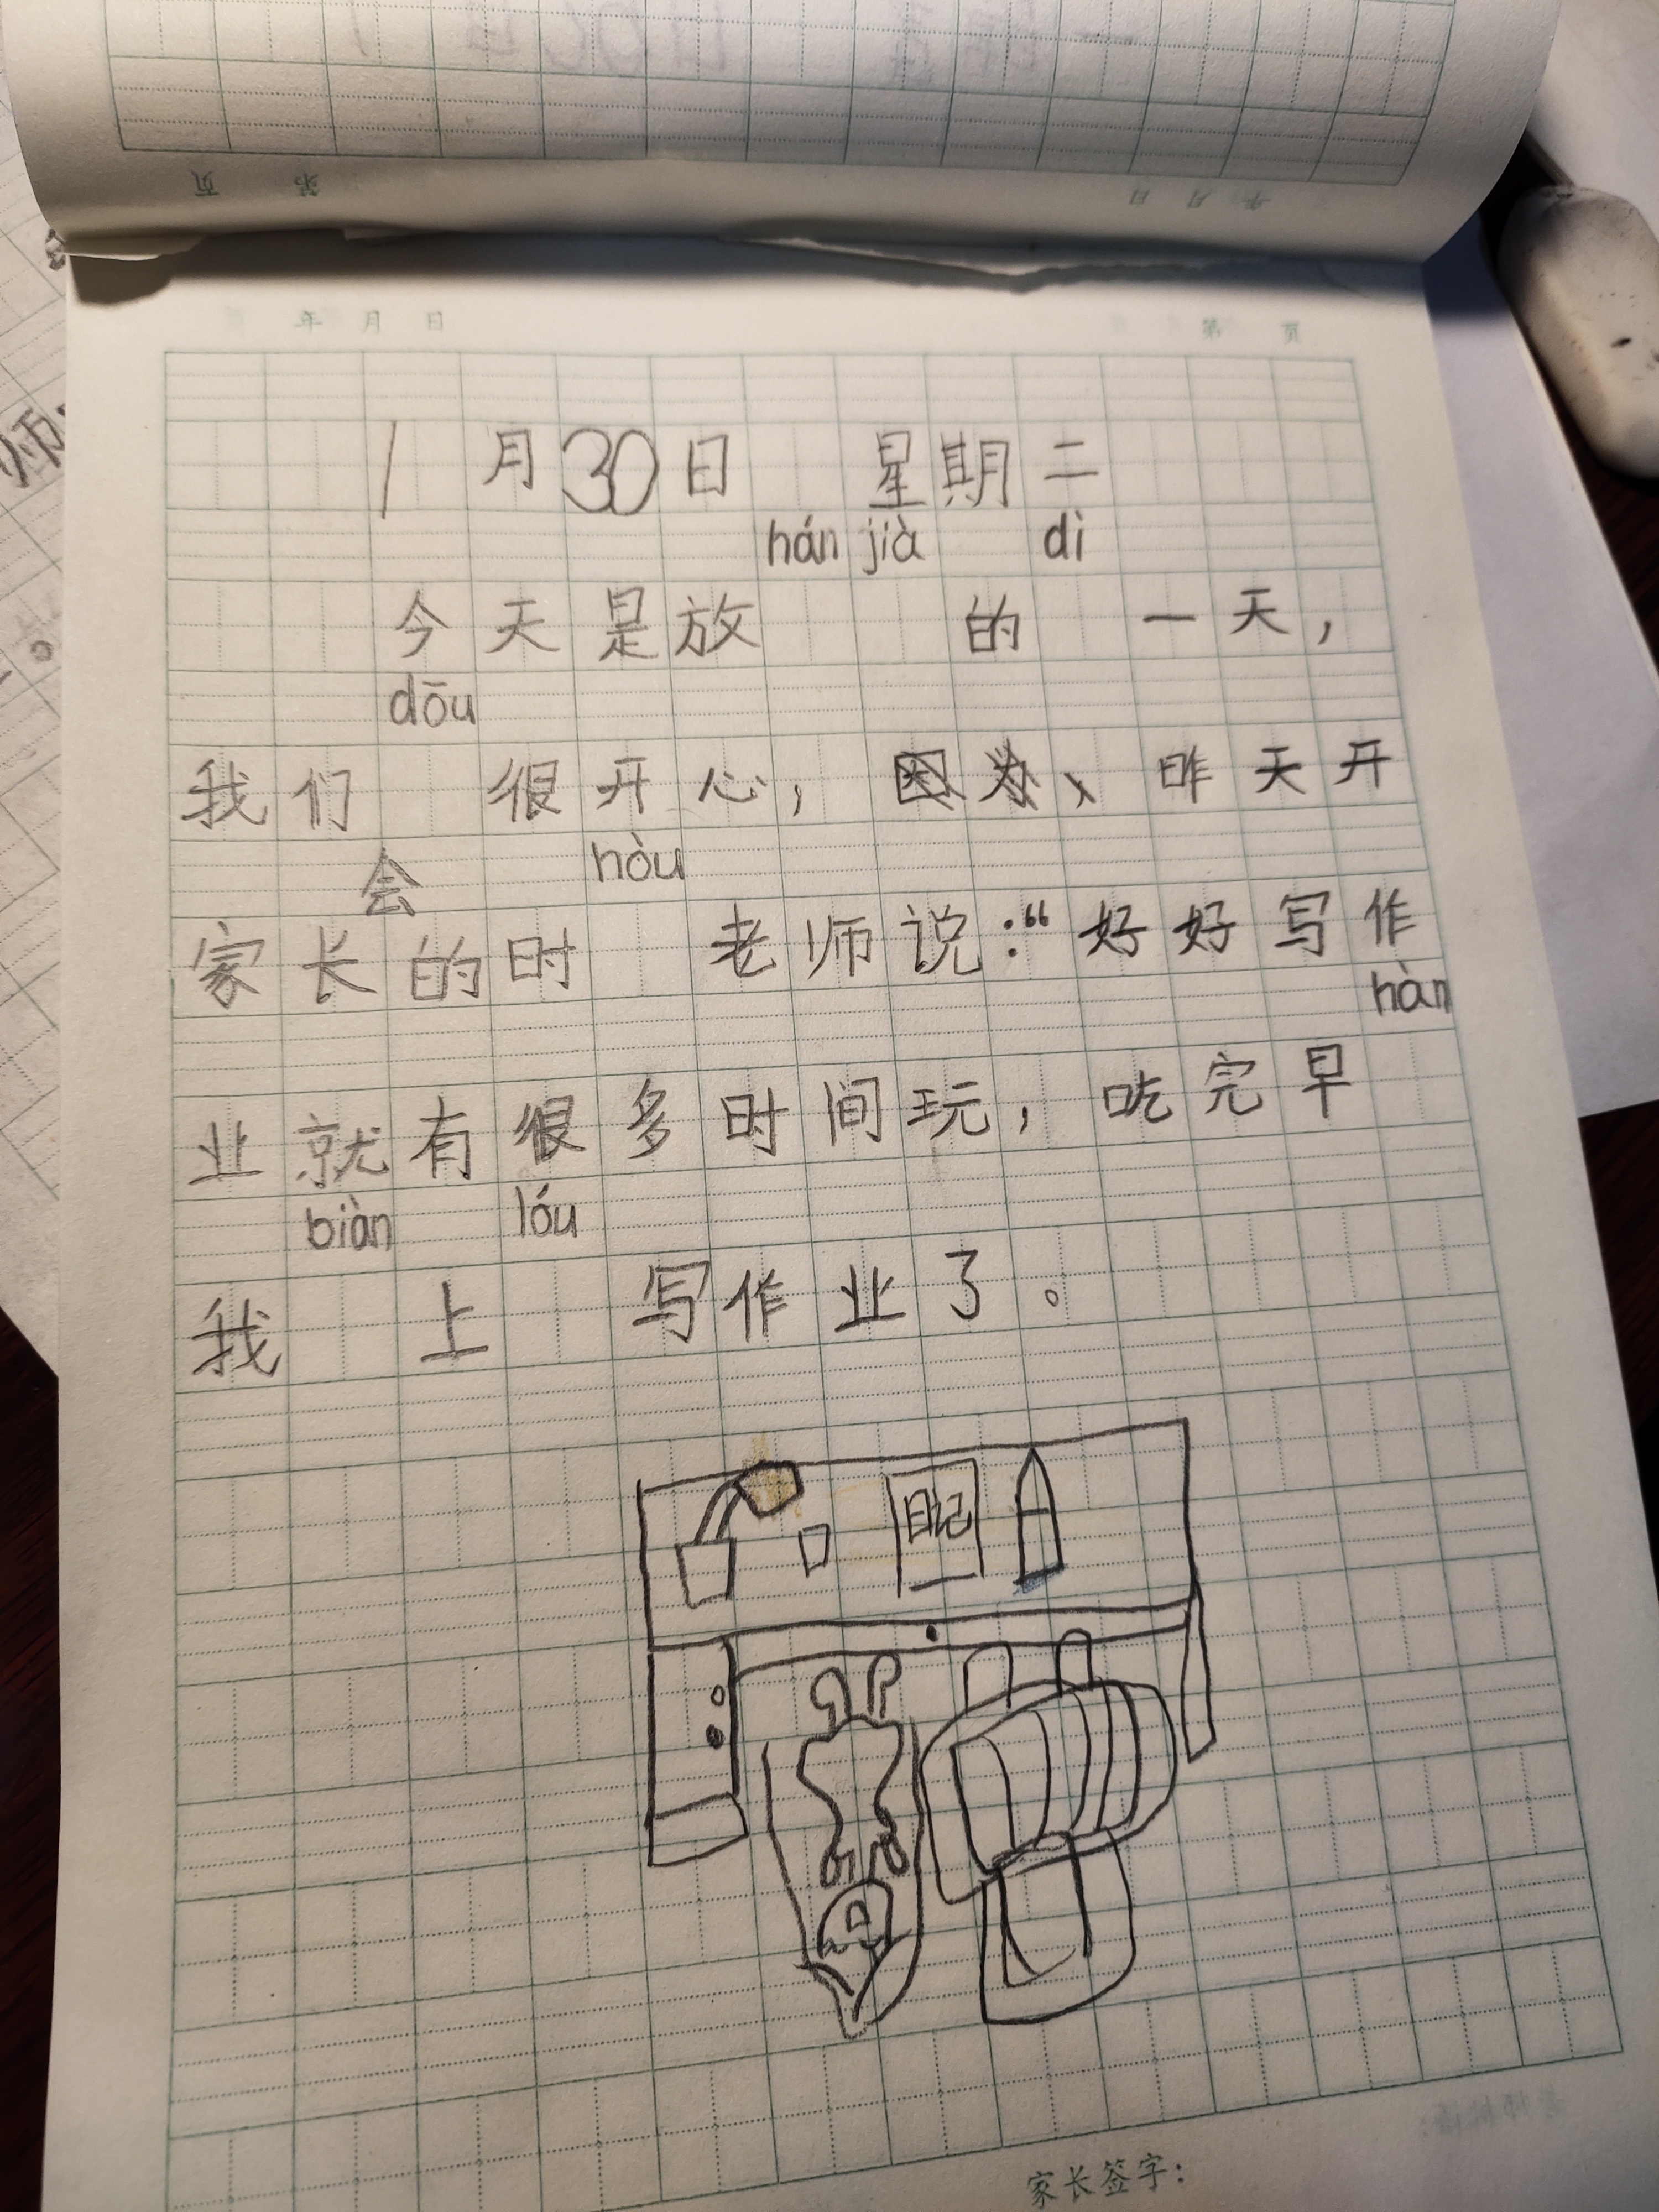 年 月 日 第 页
1月30日 星期二
hán jià dì
今天是放 的 一天，
dōu
我们 很开心，因为、昨天开
会 hòu
家长的时 老师说：“好好写作
hàn
业就有很多时间玩，吃完早
biàn lóu
我 上 写作业了。
日记
家长签字：
第 页
年 月 日
师